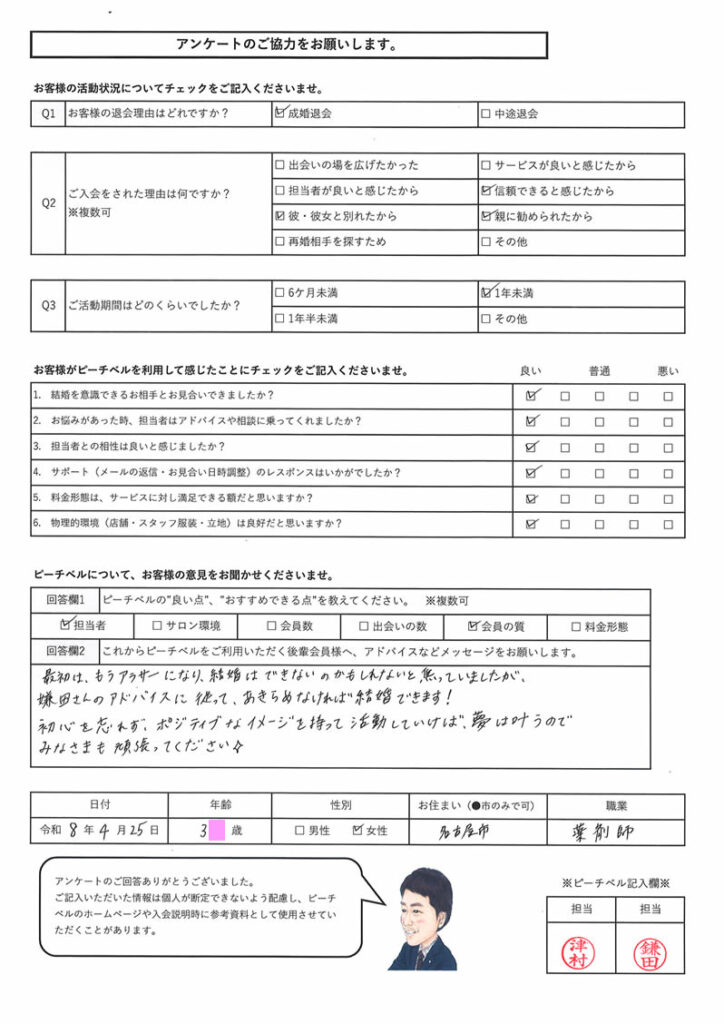 アンケートのご協力をお願いします。
お客様の活動状況についてチェックをご記入くださいませ。
Q1 お客様の退会理由はどれですか？ ☑成婚退会 □中途退会
Q2 ご入会をされた理由は何ですか？ ※複数可
□出会いの場を広げたかった □サービスが良いと感じたから
□担当者が良いと感じたから ☑信頼できると感じたから
☑彼・彼女と別れたから ☑親に勧められたから
□再婚相手を探すため □その他
Q3 ご活動期間はどのくらいでしたか？
□6ケ月未満 ☑1年未満
□1年半未満 □その他
お客様がピーチベルを利用して感じたことにチェックをご記入くださいませ。 良い 普通 悪い
1. 結婚を意識できるお相手とお見合いできましたか？ ☑ □ □ □ □
2. お悩みがあった時、担当者はアドバイスや相談に乗ってくれましたか？ ☑ □ □ □ □
3. 担当者との相性は良いと感じましたか？ ☑ □ □ □ □
4. サポート（メールの返信・お見合い日時調整）のレスポンスはいかがでしたか？ ☑ □ □ □ □
5. 料金形態は、サービスに対し満足できる額だと思いますか？ ☑ □ □ □ □
6. 物理的環境（店舗・スタッフ服装・立地）は良好だと思いますか？ ☑ □ □ □ □
ピーチベルについて、お客様の意見をお聞かせくださいませ。
回答欄1 ピーチベルの"良い点"、"おすすめできる点"を教えてください。 ※複数可
☑担当者 □サロン環境 □会員数 □出会いの数 ☑会員の質 □料金形態
回答欄2 これからピーチベルをご利用いただく後輩会員様へ、アドバイスなどメッセージをお願いします。
最初は、もうアラサーになり、結婚はできないのかもしれないと焦っていましたが、
鎌田さんのアドバイスに従って、あきらめなければ結婚できます！
初心を忘れず、ポジティブなイメージを持って活動していけば、夢は叶うので
みなさまも頑張ってください☆
日付 年齢 性別 お住まい（●市のみで可） 職業
令和 8 年 4 月 25 日 3 歳 □男性 ☑女性 名古屋市 薬剤師
アンケートのご回答ありがとうございました。
ご記入いただいた情報は個人が断定できないよう配慮し、ピーチ
ベルのホームページや入会説明時に参考資料として使用させてい
ただくことがあります。
※ピーチベル記入欄※
担当 担当
津村 鎌田